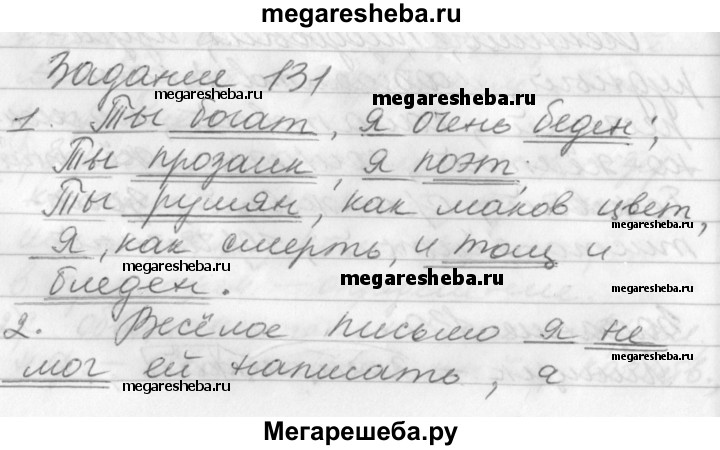 megaresheba.ru
Задание 131
megaresheba.ru
megaresheba.ru
megaresheba.ru
1. Ты богат, я очень беден;
Ты прозаик, я поэт;
Ты румян, как маков цвет,
Я, как смерть, и тощ и
megaresheba.ru
megaresheba.ru
megaresheba.ru
бледен.
2. Весёлое письмо я не
мог ей написать, а
megaresheba.ru
megaresheba.ru
megaresheba.ru
Мегарешеба.ру